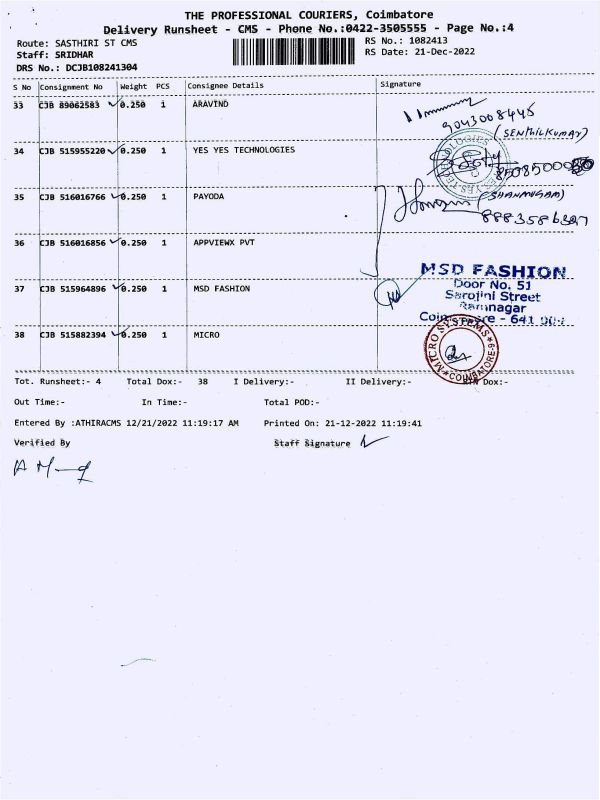 THE PROFESSIONAL COURIERS, Coimbatore
Delivery Runsheet - CMS - Phone No.:0422-3505555 - Page No.:4
Route: SASTHIRI ST CMS
RS No.: 1082413
Staff: SRIDHAR
RS Date: 21-Dec-2022
DRS No.: DCJB108241304
S No Consignment No Weight PCS Consignee Details Signature
33 CJB 89062583 0.250 1 ARAVIND
9043008445
(SENTHILKUMAR)
34 CJB 515955220 0.250 1 YES YES TECHNOLOGIES
35 CJB 516016766 0.250 1 PAYODA (SHANMUGAM)
36 CJB 516016856 0.250 1 APPVIEWX PVT
37 CJB 515964896 0.250 1 MSD FASHION
MSD FASHION
Door No. 51
Sarojini Street
Ramnagar
Coimbatore - 641
38 CJB 515882394 0.250 1 MICRO
MICRO SYSTEMS * COIMBATORE-9 *
Tot. Runsheet:- 4 Total Dox:- 38 I Delivery:- II Delivery:- Dox:-
Out Time:- In Time:- Total POD:-
Entered By :ATHIRACMS 12/21/2022 11:19:17 AM Printed On: 21-12-2022 11:19:41
Verified By Staff Signature